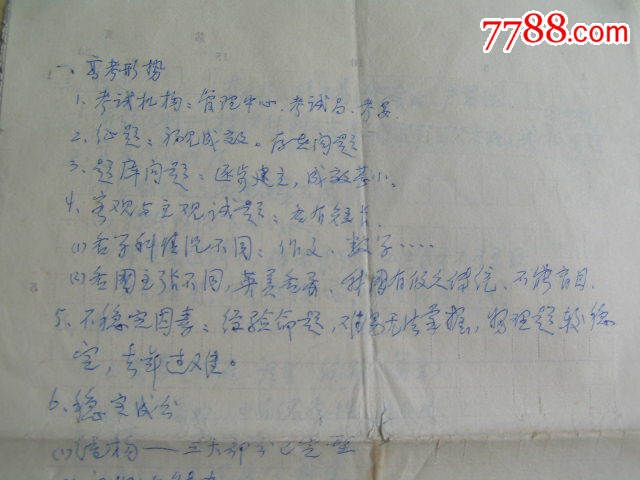 7788.com
一、高考形势
1. 考试机构：管理中心、考试局、考委.
2. 征题：初见成效。存在问题
3. 题库问题：逐步建立，成效甚小。
4. 客观与主观试题：各有
(1) 各学科情况不同：作文、数学……
(2) 各国主张不同，英美各, 我国有传统, 不能盲目.
5. 不稳定因素：经验命题，难易无法掌握，物理题较稳
定，去年过难。
6. 稳定成分
(1) 结构——三大部分已定型